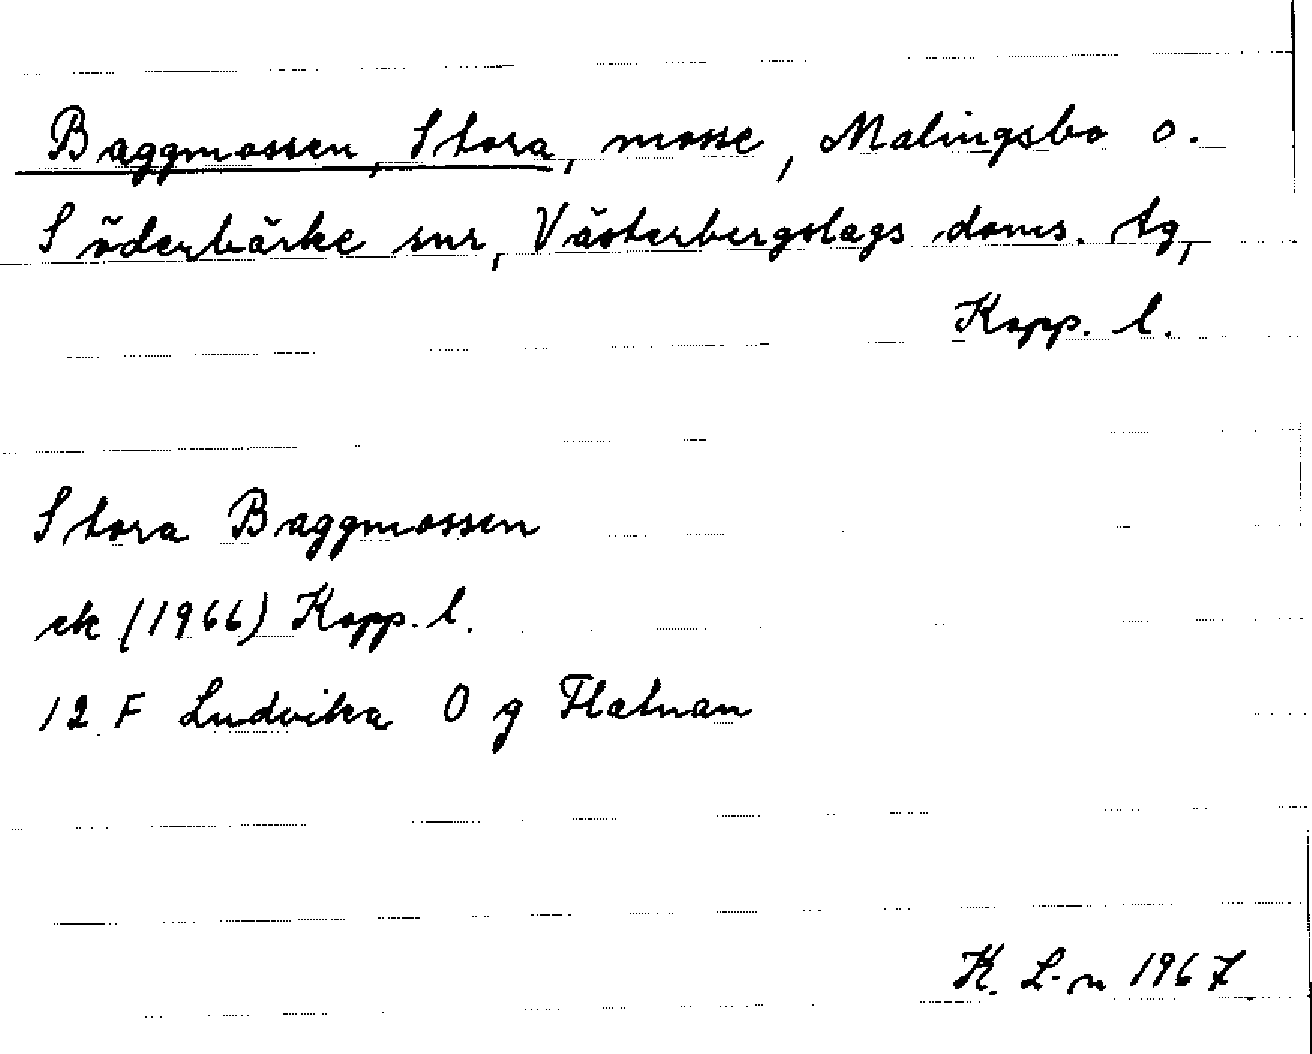 Baggmossen, Stora, mosse, Malingsbo o.
Söderbärke snr, Västerbergslags doms. tg,
Kopp. l.
Stora Baggmossen
ek (1966) Kopp. l.
12 F Ludvika 0 g Flatnan
K. L-n 1967